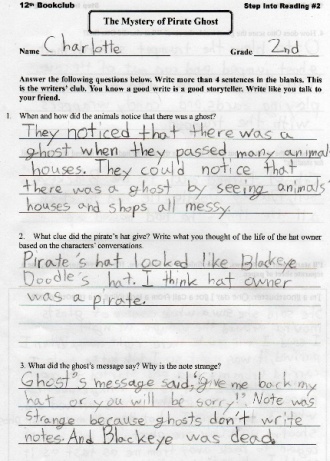 12th Bookclub Step Into Reading #2
The Mystery of Pirate Ghost
Name Charlotte Grade 2nd
Answer the following questions below. Write more than 4 sentences in the blanks. This
is the writers' club. You know a good write is a good storyteller. Write like you talk to
your friend.
1. When and how did the animals notice that there was a ghost?
They noticed that there was a
ghost when they passed many animal
houses. They could notice that
there was a ghost by seeing animals'
houses and shops all messy.
2. What clue did the pirate's hat give? Write what you thought of the life of the hat owner
based on the characters' conversations.
Pirate's hat looked like Blackeye
Doodle's hat. I think hat owner
was a pirate.
3. What did the ghost's message say? Why is the note strange?
Ghost's message said, "give me back my
hat or you will be sorry!" Note was
strange because ghosts don't write
notes. And Blackeye was dead.